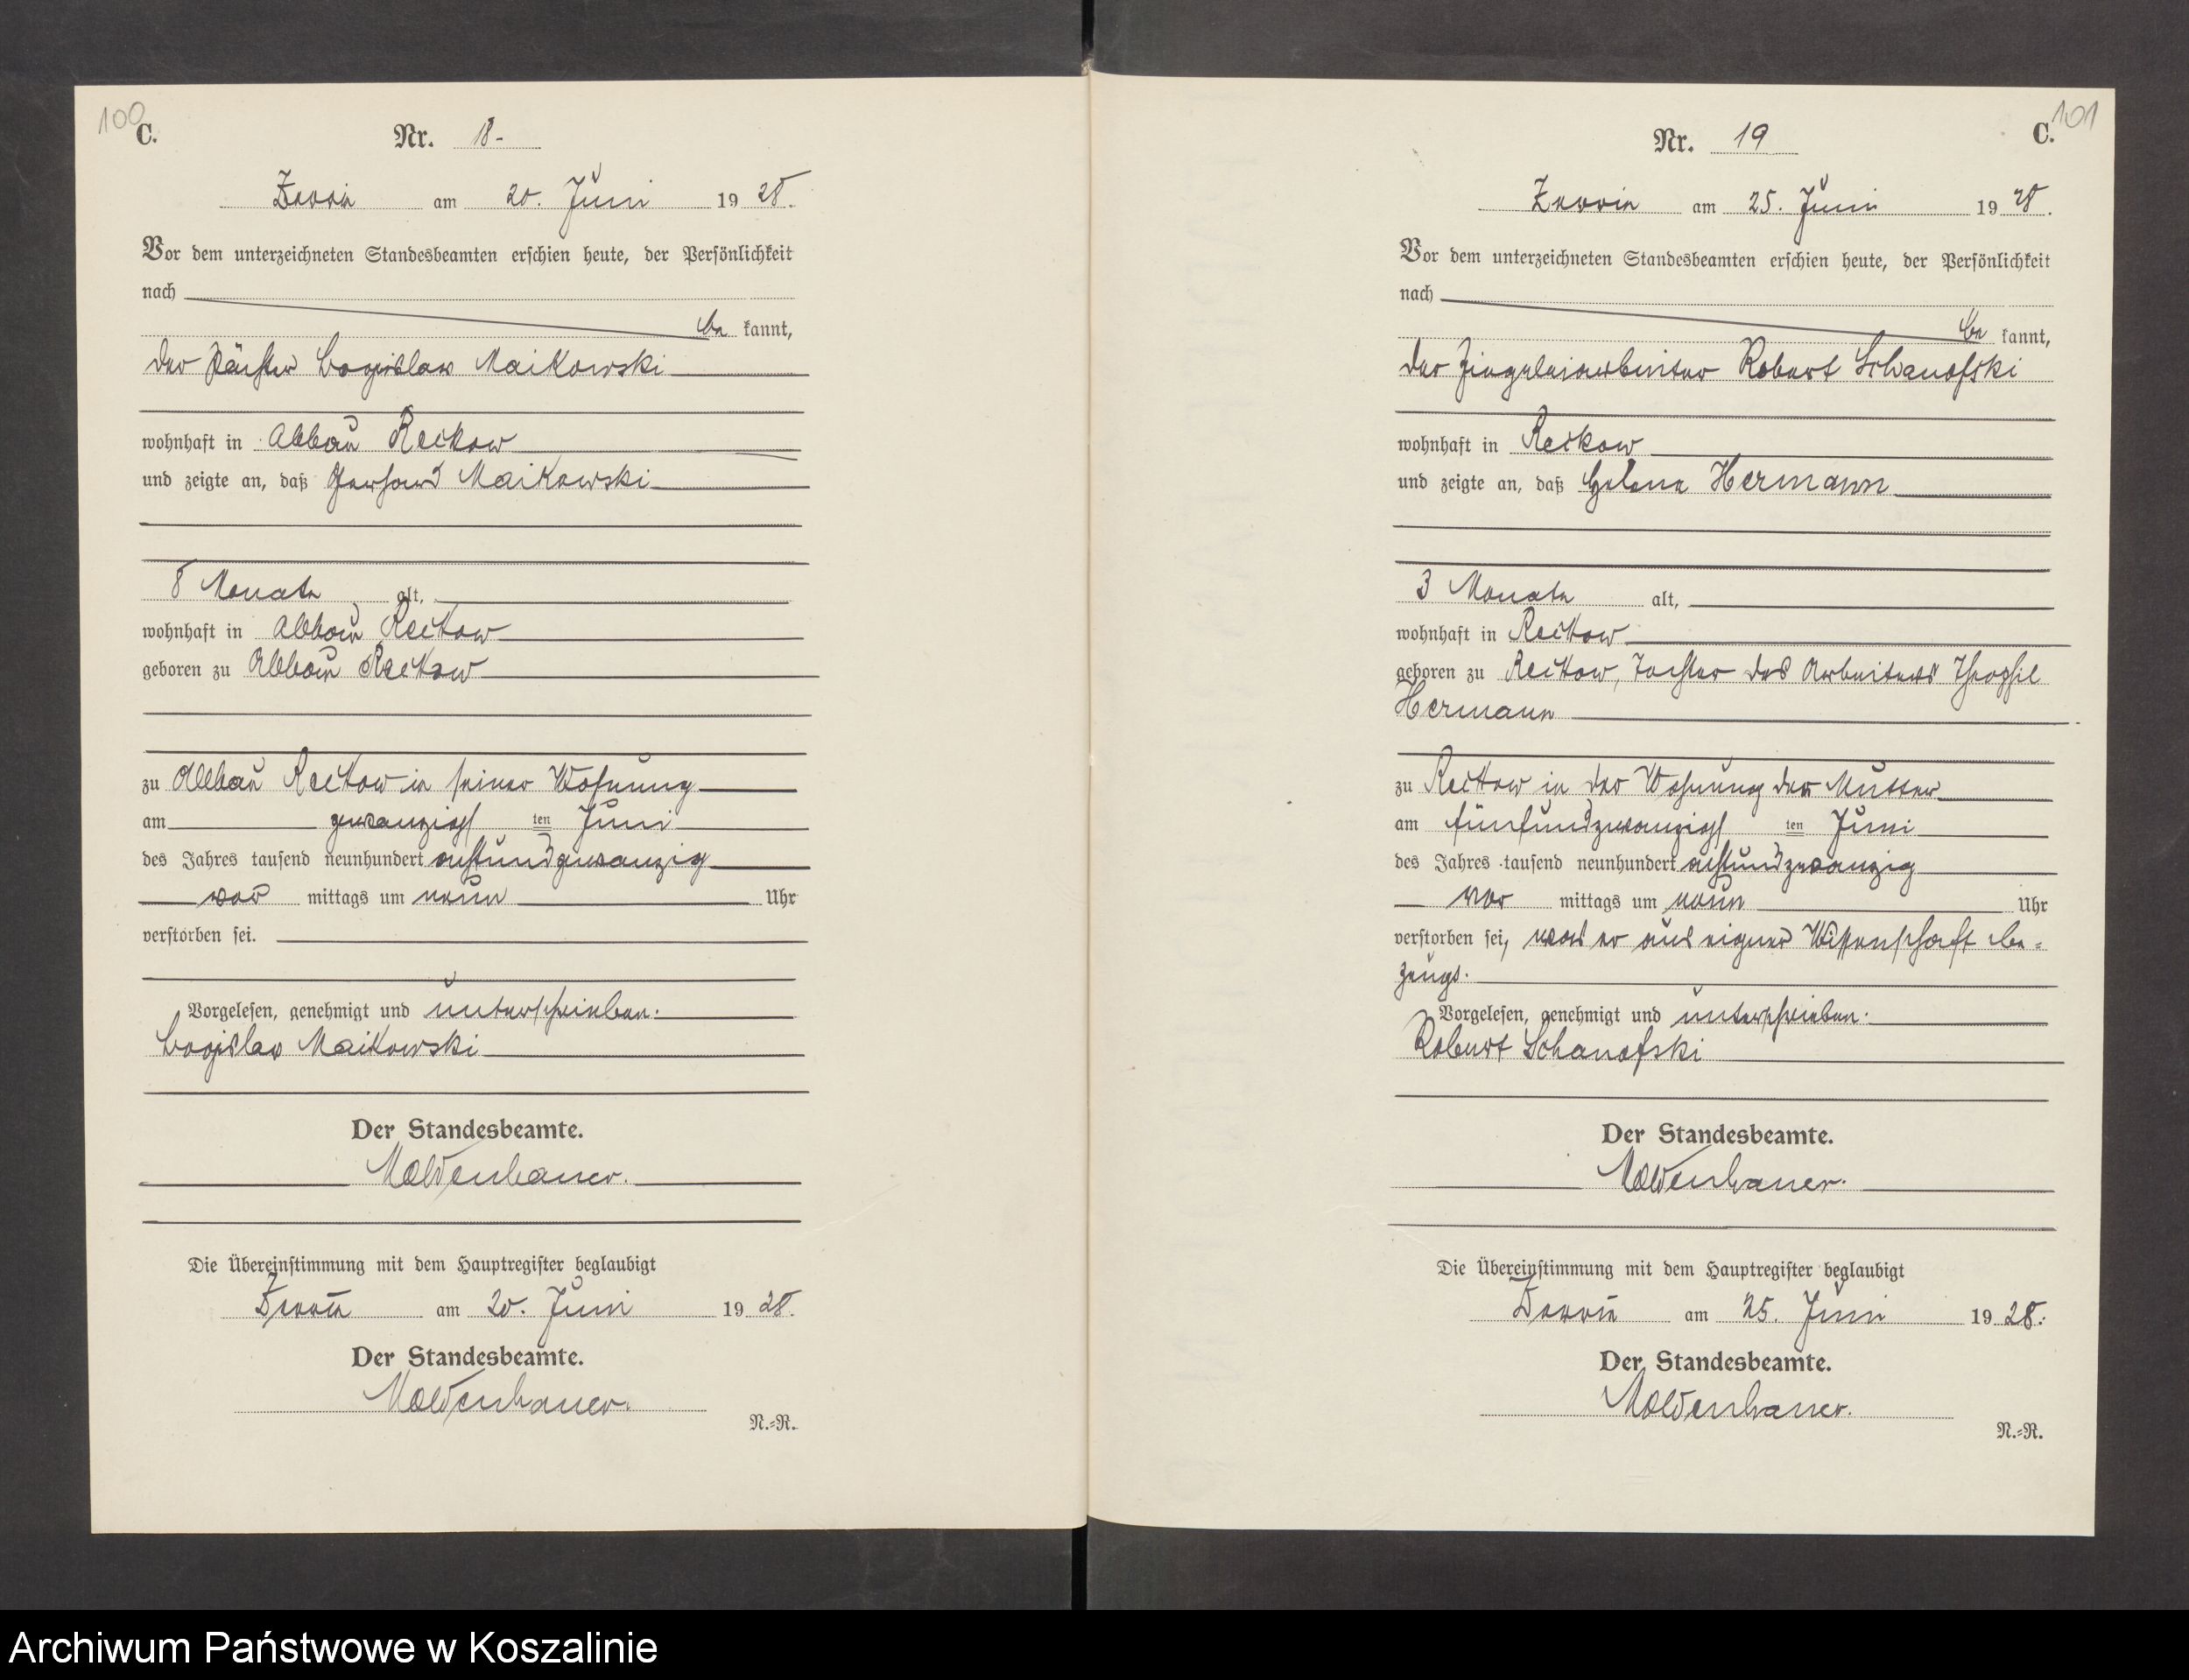 100
C.
Nr. 18-
am 20. Juni 1928.
Vor dem unterzeichneten Standesbeamten erschien heute, der Persönlichkeit
nach
be kannt,
der Pächter Bogislaw Maikowski
wohnhaft in Abbau Reckow
und zeigte an, daß Gerhard Maikowski
8 Monate alt,
wohnhaft in Abbau Reckow
geboren zu Abbau Reckow
zu Abbau Reckow in seiner Wohnung
am zwanzigsten Juni
des Jahres tausend neunhundert achtundzwanzig
vor mittags um neun Uhr
verstorben sei.
Vorgelesen, genehmigt und unterschrieben.
Bogislaw Maikowski
Der Standesbeamte.
Moldenhauer.
Die Übereinstimmung mit dem Hauptregister beglaubigt
am 20. Juni 1928.
Der Standesbeamte.
Moldenhauer.
N.=R.
101
C.
Nr. 19
am 25. Juni 1928.
Vor dem unterzeichneten Standesbeamten erschien heute, der Persönlichkeit
nach
be kannt,
der Ziegeleiarbeiter Robert Schanofski
wohnhaft in Reckow
und zeigte an, daß Helene Hermann
3 Monate alt,
wohnhaft in Reckow
geboren zu Reckow, Tochter des Arbeiters Theophil
Hermann
zu Reckow in der Wohnung der Mutter
am fünfundzwanzigsten Juni
des Jahres tausend neunhundert achtundzwanzig
vor mittags um neun Uhr
verstorben sei, was er aus eigner Wissenschaft be=
zeuge.
Vorgelesen, genehmigt und unterschrieben.
Robert Schanofski
Der Standesbeamte.
Moldenhauer.
Die Übereinstimmung mit dem Hauptregister beglaubigt
am 25. Juni 1928.
Der Standesbeamte.
Moldenhauer.
N.=R.
Archiwum Państwowe w Koszalinie